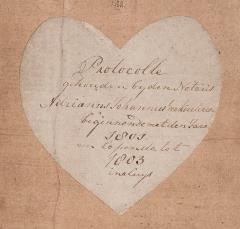 Protocolle
gehouden by den Notaris
Adrianus Johannes
beginnende met den Jare
1801
en lopende tot
1803